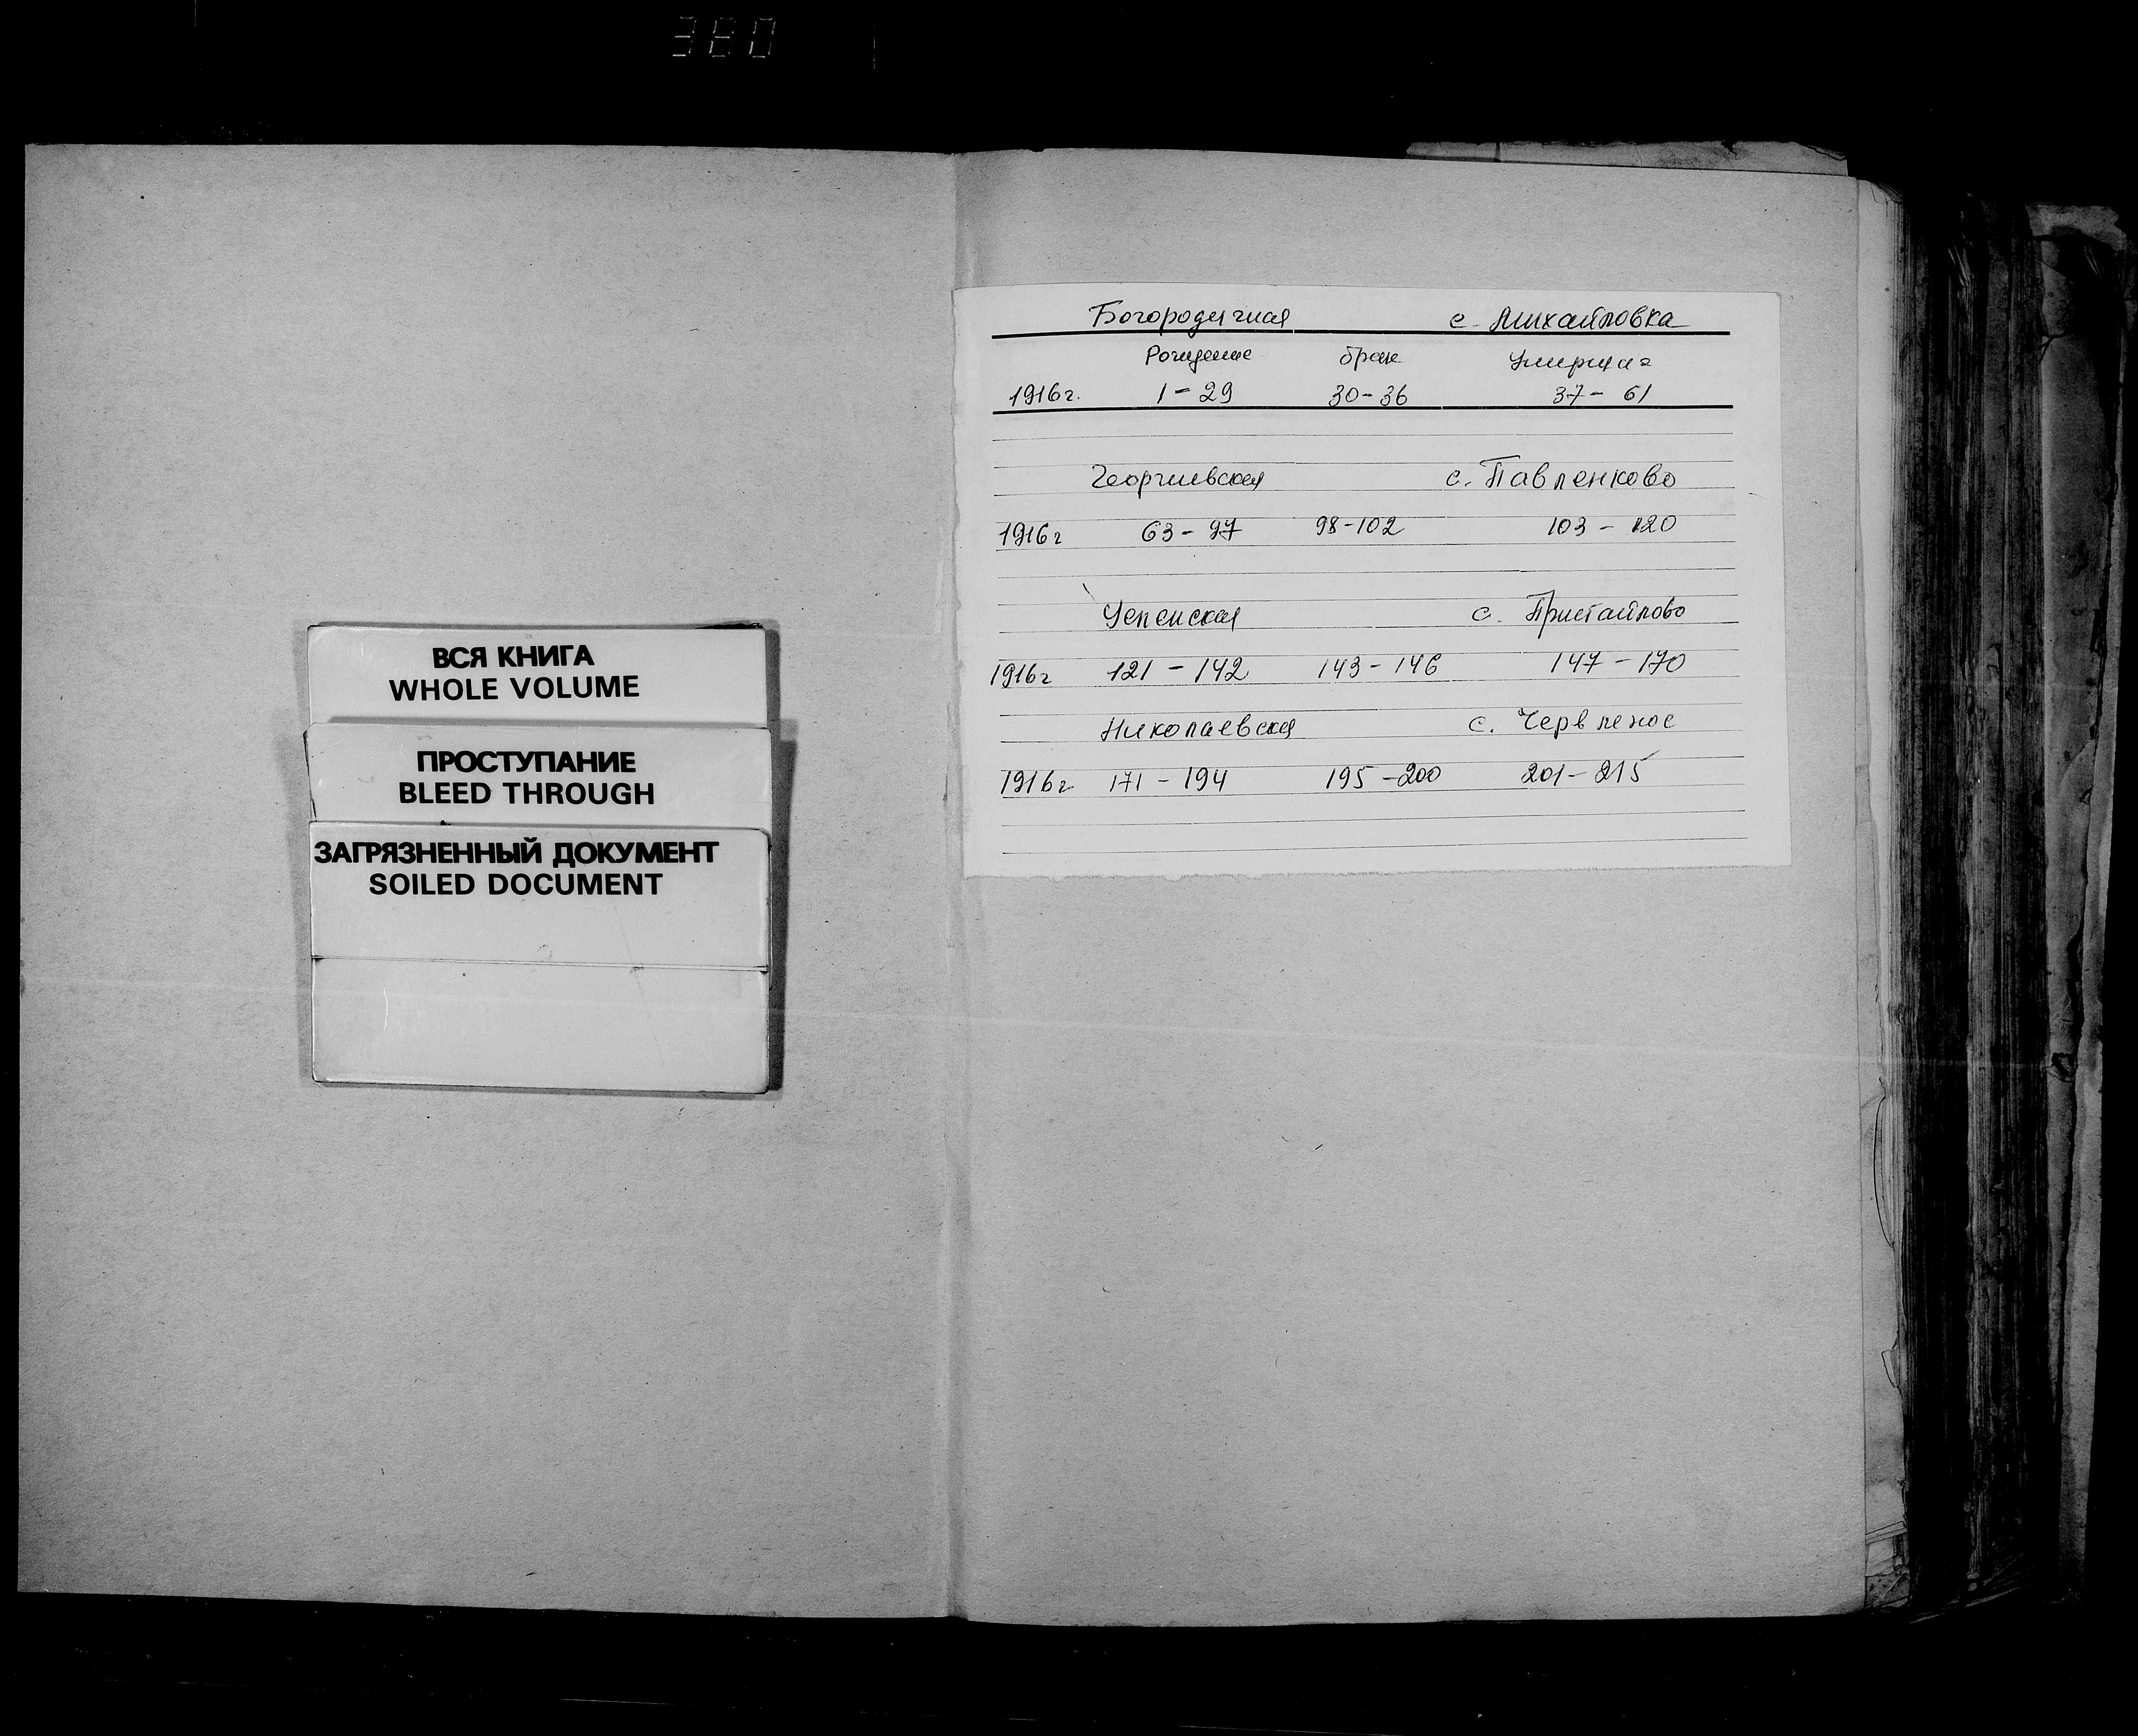 380
ВСЯ КНИГА
WHOLE VOLUME
ПРОСТУПАНИЕ
BLEED THROUGH
ЗАГРЯЗНЕННЫЙ ДОКУМЕНТ
SOILED DOCUMENT
Богородичная с. Михайловка
Рождение брак
1916г. 1-29 30-36 37-61
Георгиевская с. Павленково
1916г 63-97 98-102 103-120
Успенская с. Пристайлово
1916г 121-142 143-146 147-170
Николаевская с. Червленое
1916г. 171-194 195-200 201-215